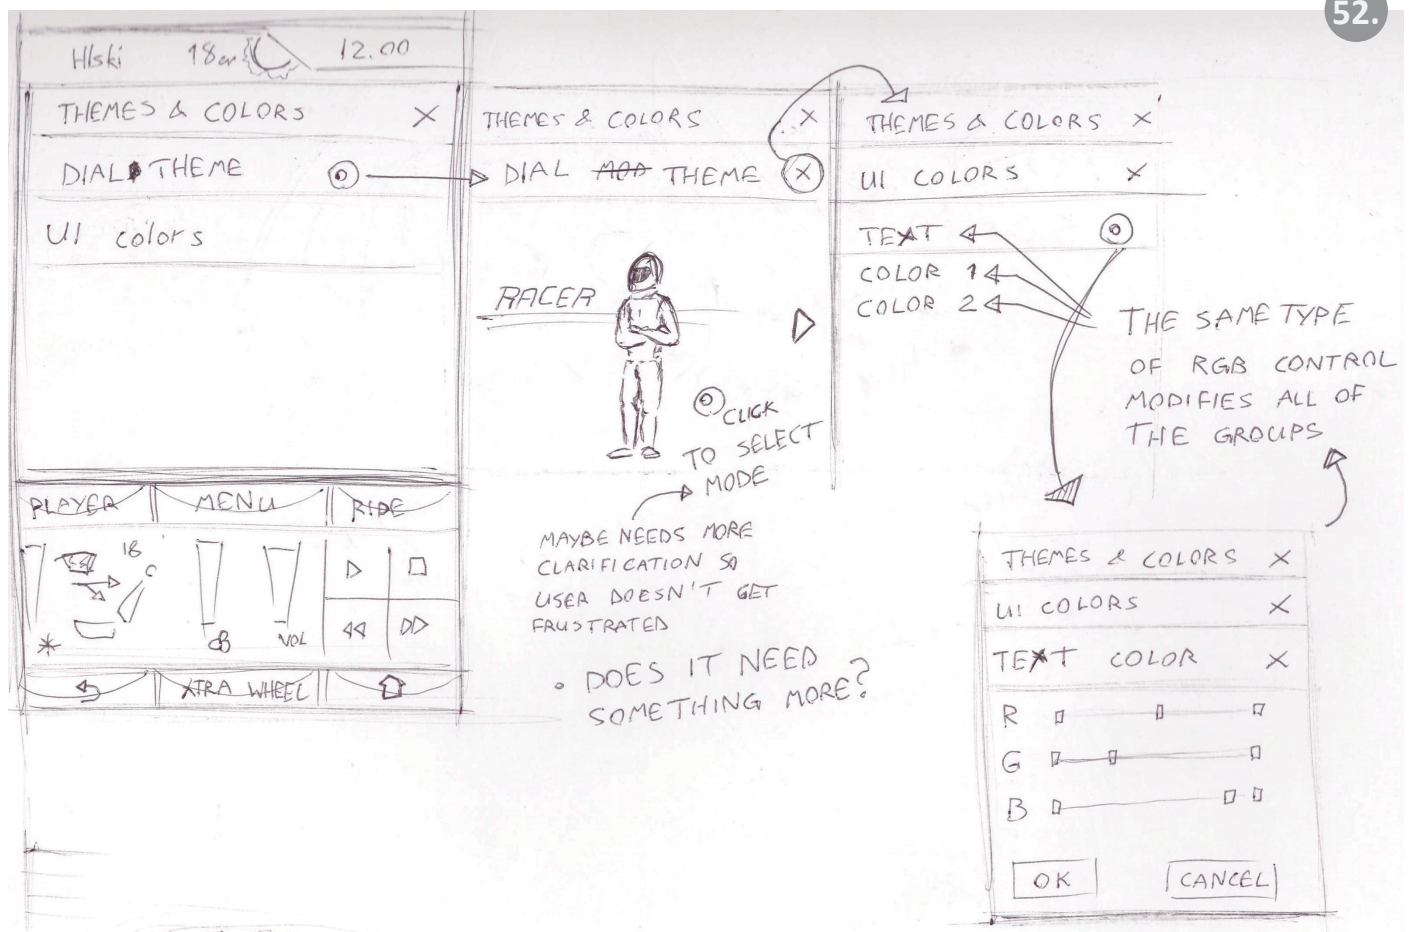 52.
Hlski 18 12.00
THEMES & COLORS X
DIAL THEME
UI colors
PLAYER MENU RIDE
18
VOL
XTRA WHEEL
THEMES & COLORS X
DIAL MOD THEME X
RACER
CLICK
TO SELECT
MODE
MAYBE NEEDS MORE
CLARIFICATION SO
USER DOESN'T GET
FRUSTRATED
• DOES IT NEED
SOMETHING MORE?
THEMES & COLORS X
UI COLORS X
TEXT
COLOR 1
COLOR 2
THE SAME TYPE
OF RGB CONTROL
MODIFIES ALL OF
THE GROUPS
THEMES & COLORS X
UI COLORS X
TEXT COLOR X
R
G
B
OK CANCEL